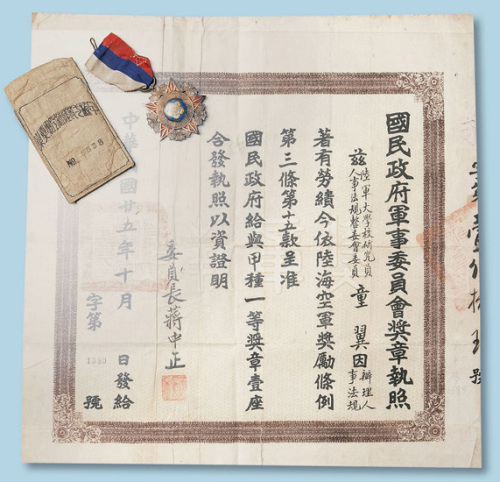 國民政府軍事委員會獎章執照
茲陸軍大學校研究員
人事法規整委會委員
童翼因辦理人
事法規
著有勞績今依陸海空軍獎勵條例
第三條第十五款呈准
國民政府給與甲種一等獎章壹座
合發執照以資證明
委員長蔣中正
中華民國廿五年十月 日發給
字第 號
號
No.